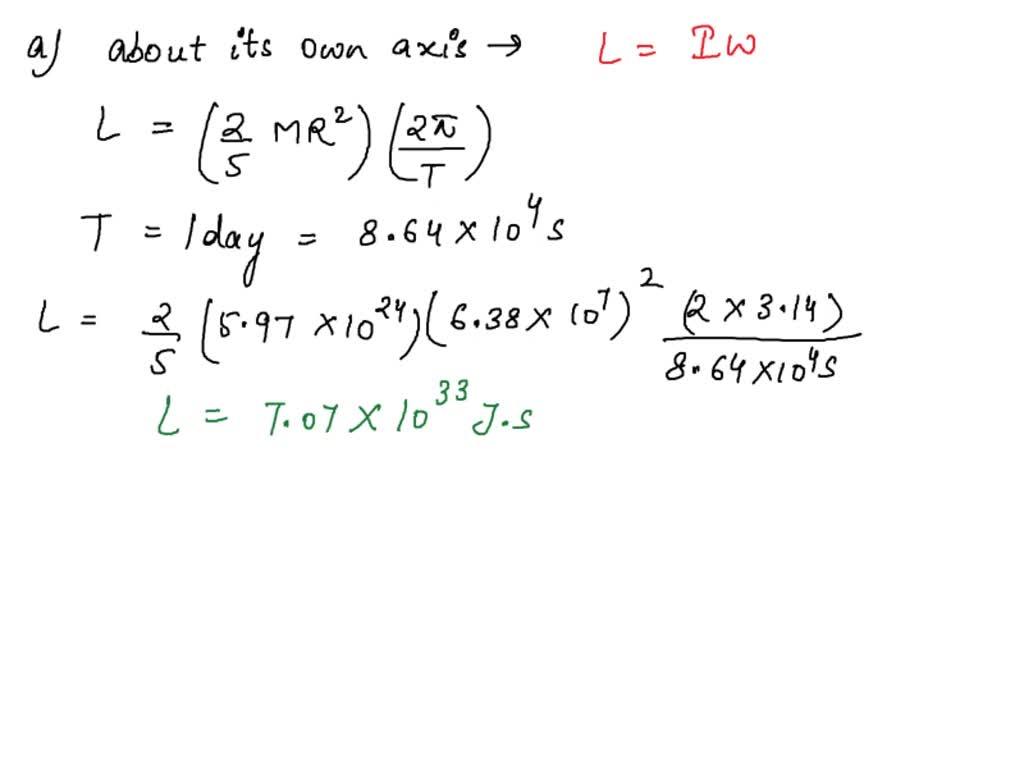 a) about its own axis → L = Iω
L = (2/5 MR²) (2π/T)
T = 1 day = 8.64 × 10⁴ s
L = 2/5 (5.97 × 10²⁴) (6.38 × 10⁷)² (2 × 3.14)/8.64 × 10⁴ s
L = 7.07 × 10³³ J.s